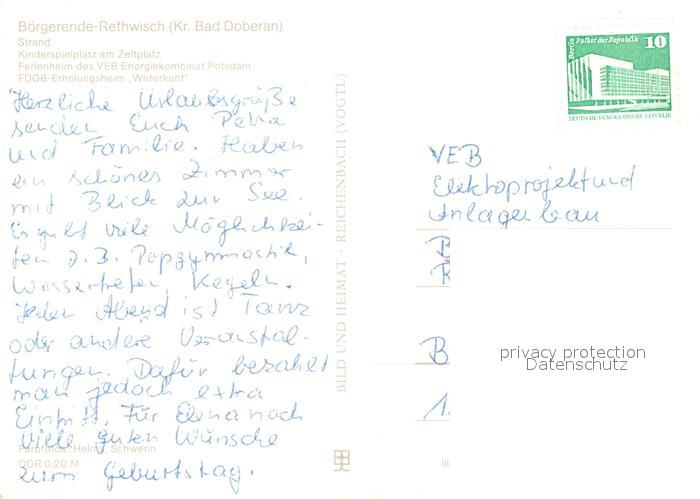 Börgerende-Rethwisch (Kr. Bad Doberan)
Strand
Kinderspielplatz am Zeltplatz
Ferienheim des VEB Energiekombinat Potsdam
FDGB-Erholungsheim „Waterkant"
Herzliche Urlaubsgrüße
senden Euch Petra
und Familie. Haben
ein schönes Zimmer
mit Blick zur See.
Es gibt viele Möglichkei-
ten z.B. Popgymnastik,
Wassertreten, Kegeln.
Jeden Abend ist Tanz
oder andere Veranstal-
tungen. Dafür bezahlt
man jedoch extra
Eintritt. Für Elena noch
viele guten Wünsche
zum Geburtstag.
Farbfotos: Helms, Schwerin
DDR 0,20 M
BILD UND HEIMAT · REICHENBACH (VOGTL)
III
Berlin Palast der Republik 10
DEUTSCHE DEMOKRATISCHE REPUBLIK
VEB
Elektroprojekt und
Anlagenbau
B
1.
privacy protection
Datenschutz